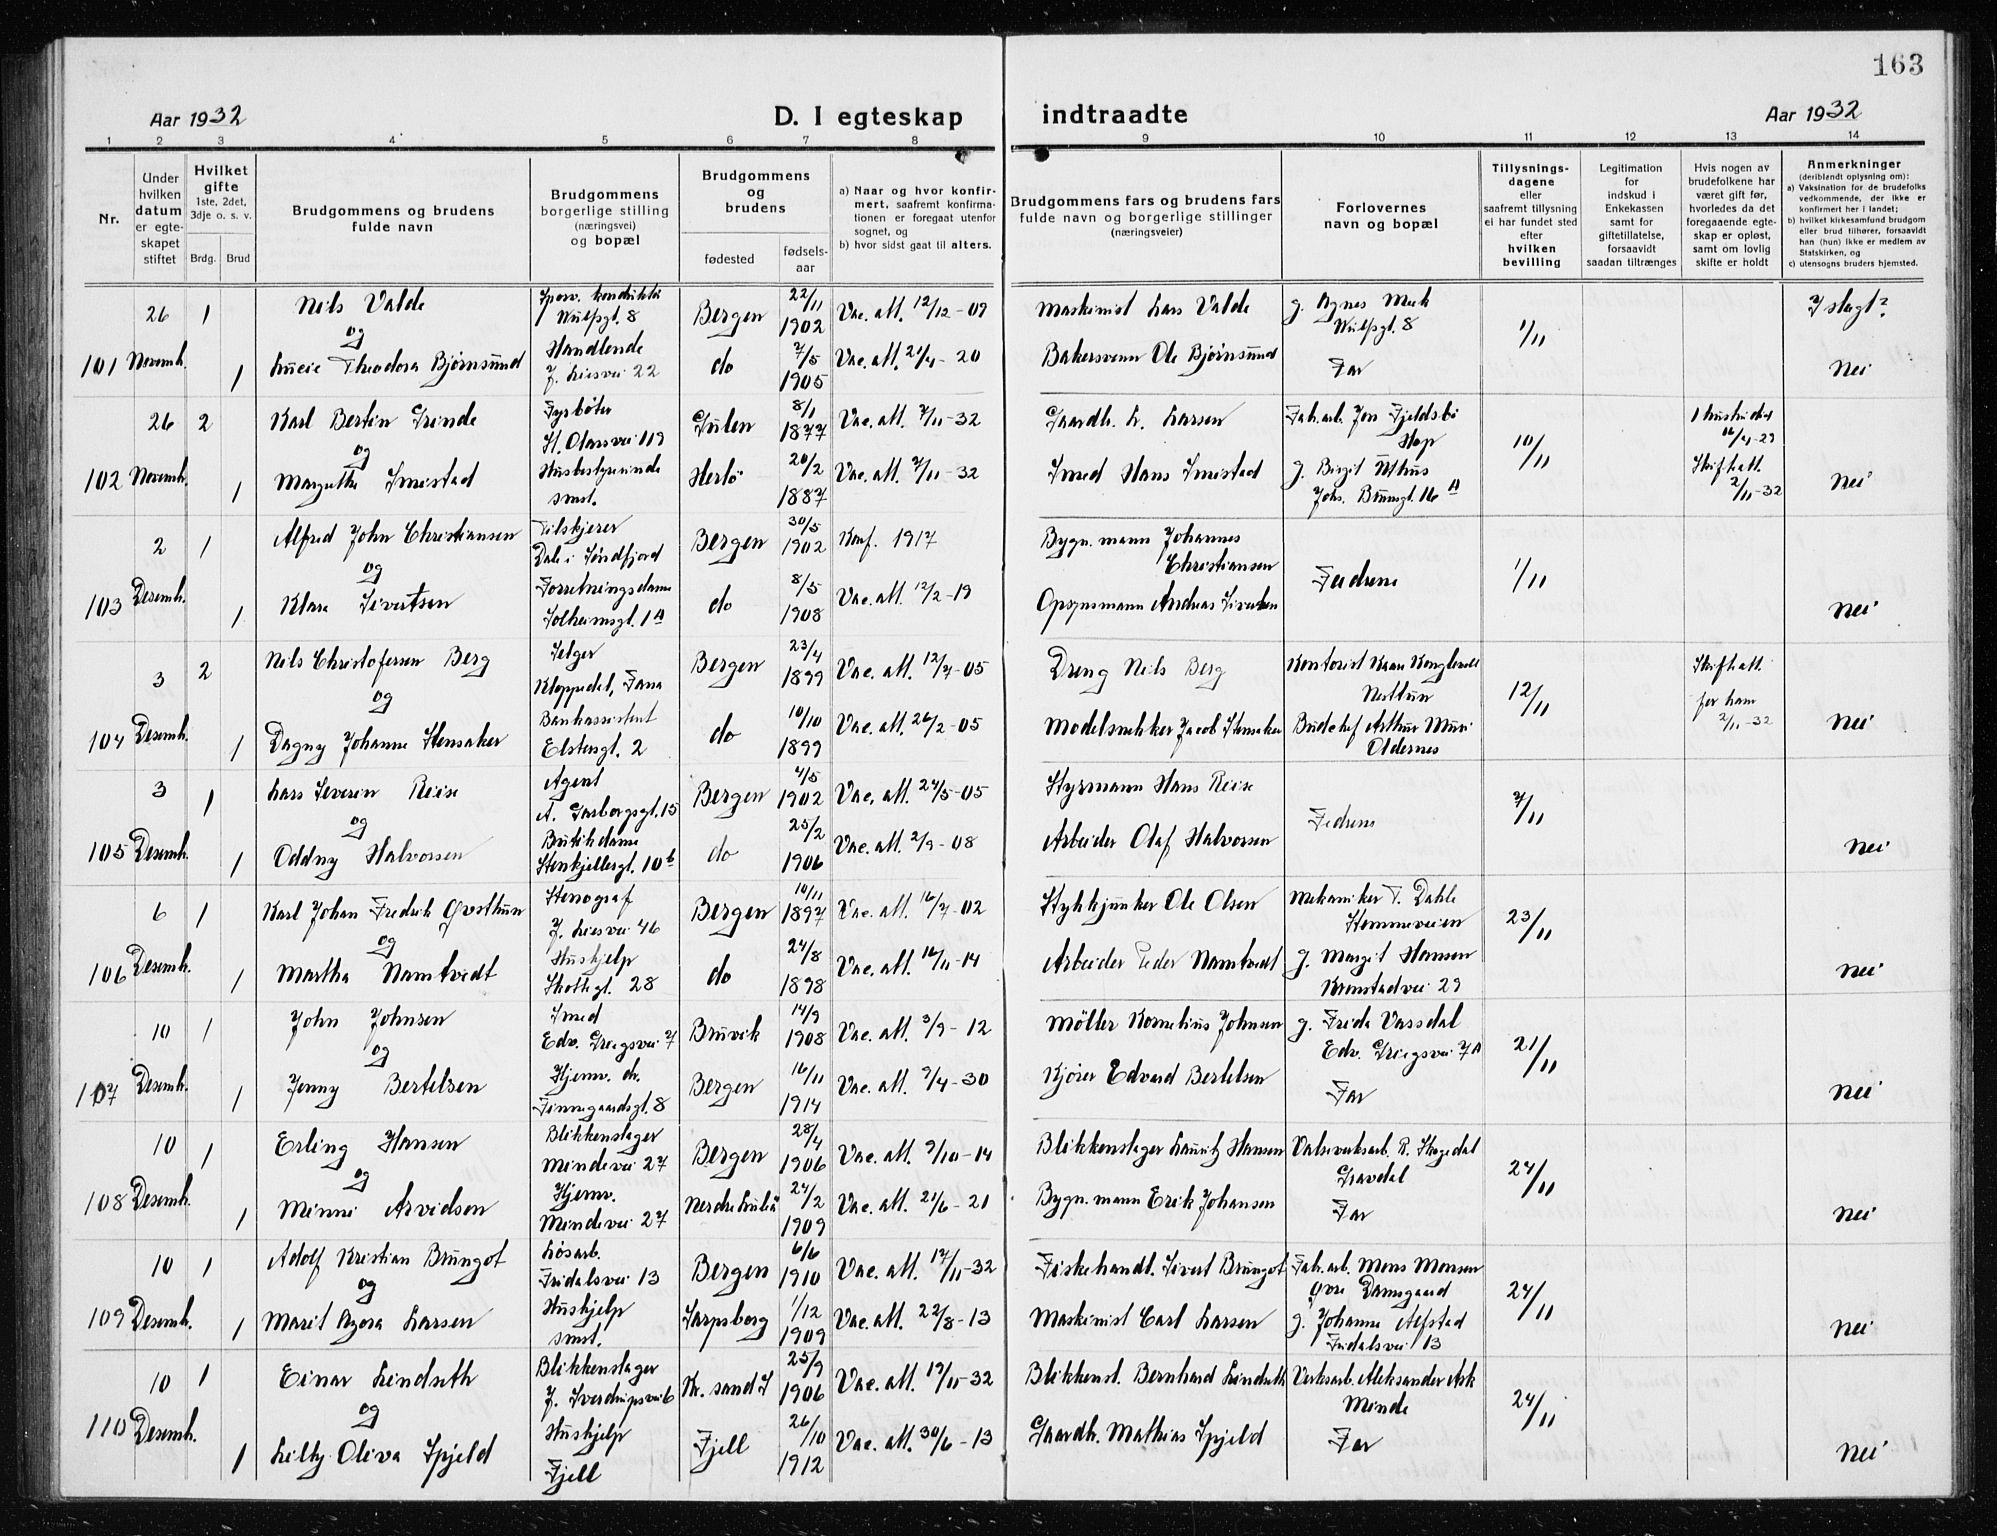 163
Aar 1932
D. I egteskap indtraadte
Aar 1932
1 2 3 4 5 6 7 8 9 10 11 12 13 14
Nr.
Under hvilken datum er egte-skapet stiftet
Hvilket gifte 1ste, 2det, 3dje o. s. v.
Brdg. Brud
Brudgommens og brudens fulde navn
Brudgommens borgerlige stilling (næringsvei) og bopæl
Brudgommens og brudens
fødested fødsels-aar
a) Naar og hvor konfir-mert, saafremt konfirma-tionen er foregaat utenfor sognet, og
b) hvor sidst gaat til alters.
Brudgommens fars og brudens fars fulde navn og borgerlige stillinger (næringsveier)
Forlovernes navn og bopæl
Tillysnings-dagene eller saafremt tillysning ei har fundet sted efter hvilken bevilling
Legitimation for indskud i Enkekassen samt for giftetillatelse, forsaavidt saadan tiltrænges
Hvis nogen av brudefolkene har været gift før, hvorledes da det foregaaende egte-skap er opløst, samt om lovlig skifte er holdt
Anmerkninger (deriblandt oplysning om):
a) Vaksination for de brudefolks vedkommende, der ikke er konfirmert her i landet;
b) hvilket kirkesamfund brudgom eller brud tilhører, forsaavidt han (hun) ikke er medlem av Statskirken, og
c) utensogns bruders hjemsted.
101 26 Novemb. 1 Nils Valde
Sporv. konduktør Wulfsgt. 8
Bergen 22/11 1902 Vac. att. 12/12-09
Maskinist Lars Valde
g. Agnes Wulfsgt. 8
1/11
I slegt?
og
1 Lucie Theodora Bjørnsund
Handlende J. Liesvei 22
do 7/5 1905 Vac. att. 21/4-20
Bakersvenn Ole Bjørnsund
Far
Nei
102 26 Novemb. 2 Karl Bertin Grinde
Fyrbøter St. Olavsvei 119
Gulen 8/1 1877 Vac. att. 7/11-32
Gaardb. L. Larsen
Fab.arb. Jon Fjeldsbø Hop
10/11
1 hustru død 16/4-29
og
1 Margrethe Smestad
Husbestyrerinde smst.
Herlø 20/2 1887 Vac. att. 7/11-32
Smed Hans Smestad
g. Birgit Uthus Johs. Bruunsgt. 16 A
Skifteatt. 2/11-32
Nei
103 2 Desemb. 1 Alfred John Christiansen
Filskjærer Dale i Søndfjord
Bergen 30/5 1902 Konf. 1917
Bygn.mann Johannes Christiansen
Fedrene
1/11
og
1 Klara Sivertsen
Forretningsdame Solheimsgt. 1 A
do 8/5 1908 Vac. att. 12/2-19
Opsynsmann Andreas Sivertsen
Nei
104 3 Desemb. 2 Nils Christofersen Berg
Selger Kloppedal, Fana
Bergen 23/4 1899 Vac. att. 12/7-05
Dreng Nils Berg
Kontorist Nesttun
12/11
Skifteatt. for ham 2/11-32
og
1 Dagny Johanne Stensaker
Bankassistent Elstersgt. 2
do 10/10 1899 Vac. att. 26/2-05
Modelsnekker Jacob Stensaker
Arthur Oldernes
Nei
105 3 Desemb. 1 Lars Severin Reise
Agent A. Garborgsgt. 15
Bergen 4/5 1902 Vac. att. 24/5-05
Styrmann Hans Reise
Fedrene
7/11
og
1 Oddny Halvorsen
Butikdame Stenkjellergt. 10 b
do 25/2 1906 Vac. att. 2/9-08
Arbeider Olaf Halvorsen
Nei
106 6 Desemb. 1 Karl Johan Fredrik Øvsthun
Stenograf J. Liesvei 46
Bergen 10/11 1897 Vac. att. 16/7-02
Stykkjunker Ole Olsen
Mekaniker T. Dahle Stemmeveien
23/11
og
1 Martha Namtvedt
Huskjelp Skottegt. 28
do 24/8 1898 Vac. att. 16/11-14
Arbeider Peder Namtvedt
g. Margit Hansen Kronstadvei 29
Nei
107 10 Desemb. 1 John Johnsen
Smed Edv. Griegsvei 7
Bruvik 14/9 1908 Vac. att. 3/9-12
Møller Kornelius Johnsen
g. Frida Vassdal Edv. Griegsvei 7 A
21/11
og
1 Jenny Bertelsen
Hjemv. dr. Finnegaardsgt. 8
Bergen 16/11 1914 Vac. att. 9/4-30
Kjører Edvard Bertelsen
Far
Nei
108 10 Desemb. 1 Erling Hansen
Blikkenslager Mindevei 27
Bergen 28/4 1906 Vac. att. 9/10-14
Blikkenslager Lauritz Hansen
Valseverksarb. R. Skogedal Gravdal
24/11
og
1 Minni Arvidsen
Hjemv. Mindevei 27
Nerdre Luleå 24/2 1909 Vac. att. 21/6-21
Bygn.mann Erik Johansen
Far
Nei
109 10 Desemb. 1 Adolf Kristian Brungot
Løsarb. Fridalsvei 13
Bergen 6/6 1910 Vac. att. 17/11-32
Fiskehandl. Sivert Brungot
Fab.arb. Mons Monsen Øvre Damsgaard
24/11
og
1 Marit Agora Larsen
Huskjelp smst.
Sarpsborg 1/12 1909 Vac. att. 22/8-13
Maskinist Carl Larsen
g. Johanne Alfstad Fridalsvei 13
Nei
110 10 Desemb. 1 Einar Lindseth
Blikkenslager J. Sverdrupsvei 6
Kr. sand S 25/9 1906 Vac. att. 19/11-32
Blikkensl. Bernhard Lindseth
Verksarb. Aleksander Ask Minde
24/11
og
1 Lilly Oliva Spjeld
Huskjelp Fjell
Fjell 26/10 1912 Vac. att. 30/6-13
Gaardb. Mathias Spjeld
Far
Nei